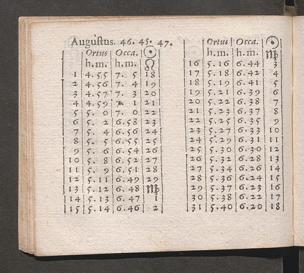 Augustus. 46. 45. 47.
Ortus Occa. ☉
h. m. h. m. ♌
1 4.55 7. 5 18
2 4.56 7. 4 19
3 4.57 7. 3 20
4 4.59 7. 1 21
5 5. 0 7. 0 22
6 5. 2 6.58 23
7 5. 4 6.56 24
8 5. 5 6.55 25
9 5. 6 6.54 26
10 5. 8 6.52 27
11 5. 9 6.51 28
12 5.11 6.49 29
13 5.12 6.48 ♍
14 5.13 6.47 1
15 5.14 6.46 2
Ortus Occa. ☉
h. m. h. m. ♍
16 5.16 6.44 3
17 5.18 6.42 4
18 5.19 6.41 5
19 5.20 6.40 6
20 5.22 6.38 7
21 5.23 6.37 8
22 5.25 6.35 9
23 5.27 6.33 10
24 5.29 6.31 11
25 5.30 6.30 12
26 5.32 6.28 13
27 5.34 6.26 14
28 5.36 6.24 15
29 5.37 6.23 16
30 5.38 6.22 17
31 5.40 6.20 18